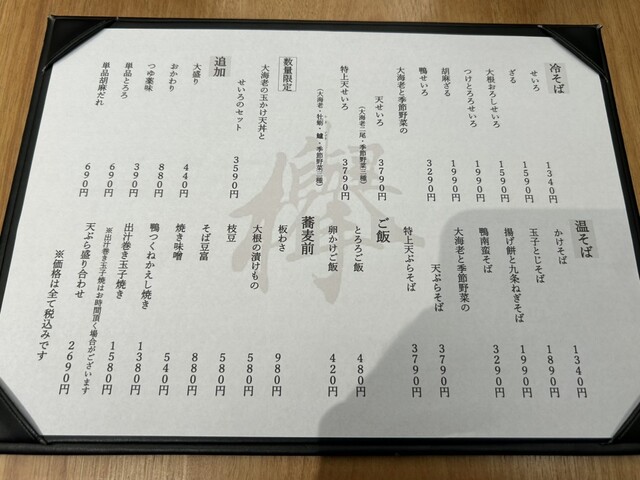 冷そば
せいろ 1340円
ざる 1590円
大根おろしせいろ 1590円
つけとろろせいろ 1990円
胡麻ざる 1990円
鴨せいろ 3290円
大海老と季節野菜の
天せいろ 3790円
(大海老二尾・季節野菜三種)
特上天せいろ 3790円
(大海老・牡蛎・鱚・季節野菜二種)
数量限定
大海老の玉かけ天丼と
せいろのセット 3590円
追加
大盛り 440円
おかわり 880円
つゆ薬味 390円
単品とろろ 690円
単品胡麻だれ 690円
欅
温そば
かけそば 1340円
玉子とじそば 1890円
揚げ餅と九条ねぎそば 1990円
鴨南蛮そば 3290円
大海老と季節野菜の
天ぷらそば 3790円
特上天ぷらそば 3790円
ご飯
とろろご飯 480円
卵かけご飯 420円
蕎麦前
板わさ 980円
大根の漬けもの 580円
枝豆 580円
そば豆富 880円
焼き味噌 540円
鴨つくねかえし焼き 1380円
出汁巻き玉子焼き 1580円
※出汁巻き玉子焼はお時間頂く場合がございます
天ぷら盛り合わせ 2690円
※価格は全て税込みです